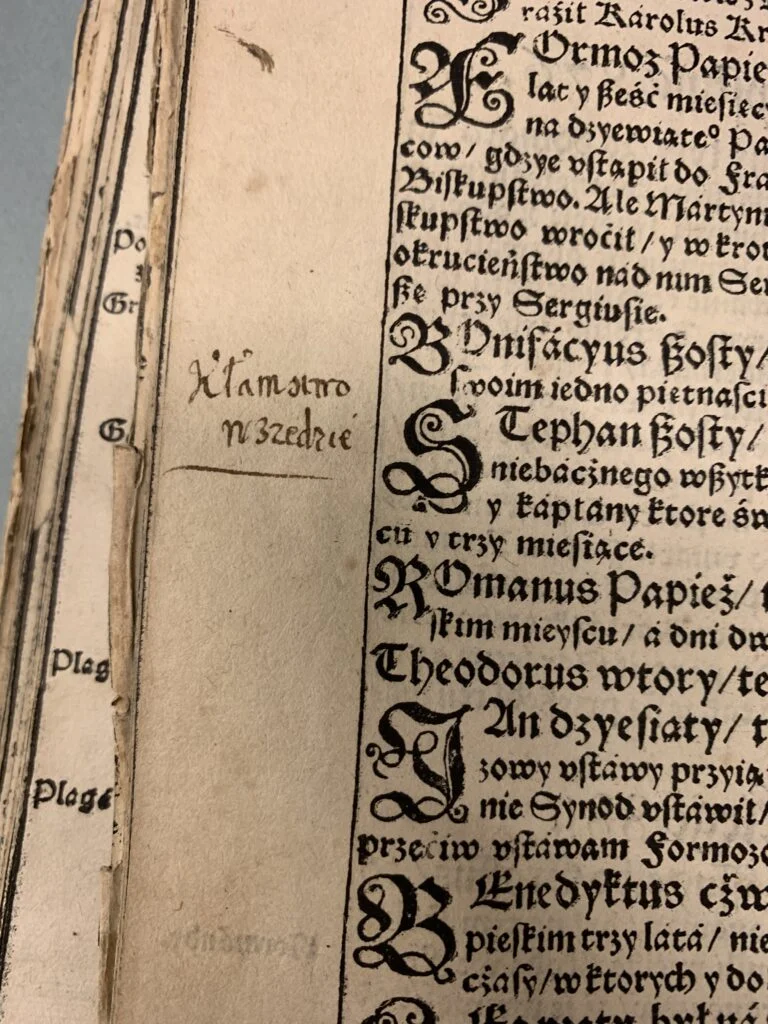 raźit Karolus Kr
FOrmoz Papie
lat y ßeść mieſięcy
na dzyewiate° Pa
cow / gdzye vſtąpił do Fra
Biſkupſtwo. Ale Mártyn
ſkupſtwo wroćił / y w krot
okrucieńſtwo nad nim Ser
ße przy Sergiuſie.
BOnifácyus ßoſty /
ſwoim iedno piętnaſci
STephan ßoſty /
niebacżnego wßytk
y kápłany ktore św
cu y trzy mieſiące.
ROmanus Papież / t
ſkim mieyſcu / á dni dw
Theodorus wtory / te
JAn dzyeſiąty / t
zowy vſtáwy przyią
nie Synod vſtáwił /
przeciw vſtáwam Formozo
BEnedyktus cżw
pieſkim trzy látá / nie
cżáſy / w ktorych y do
Kłamstwo
wszedzie
Po
Gr
G
Plag
Plagá